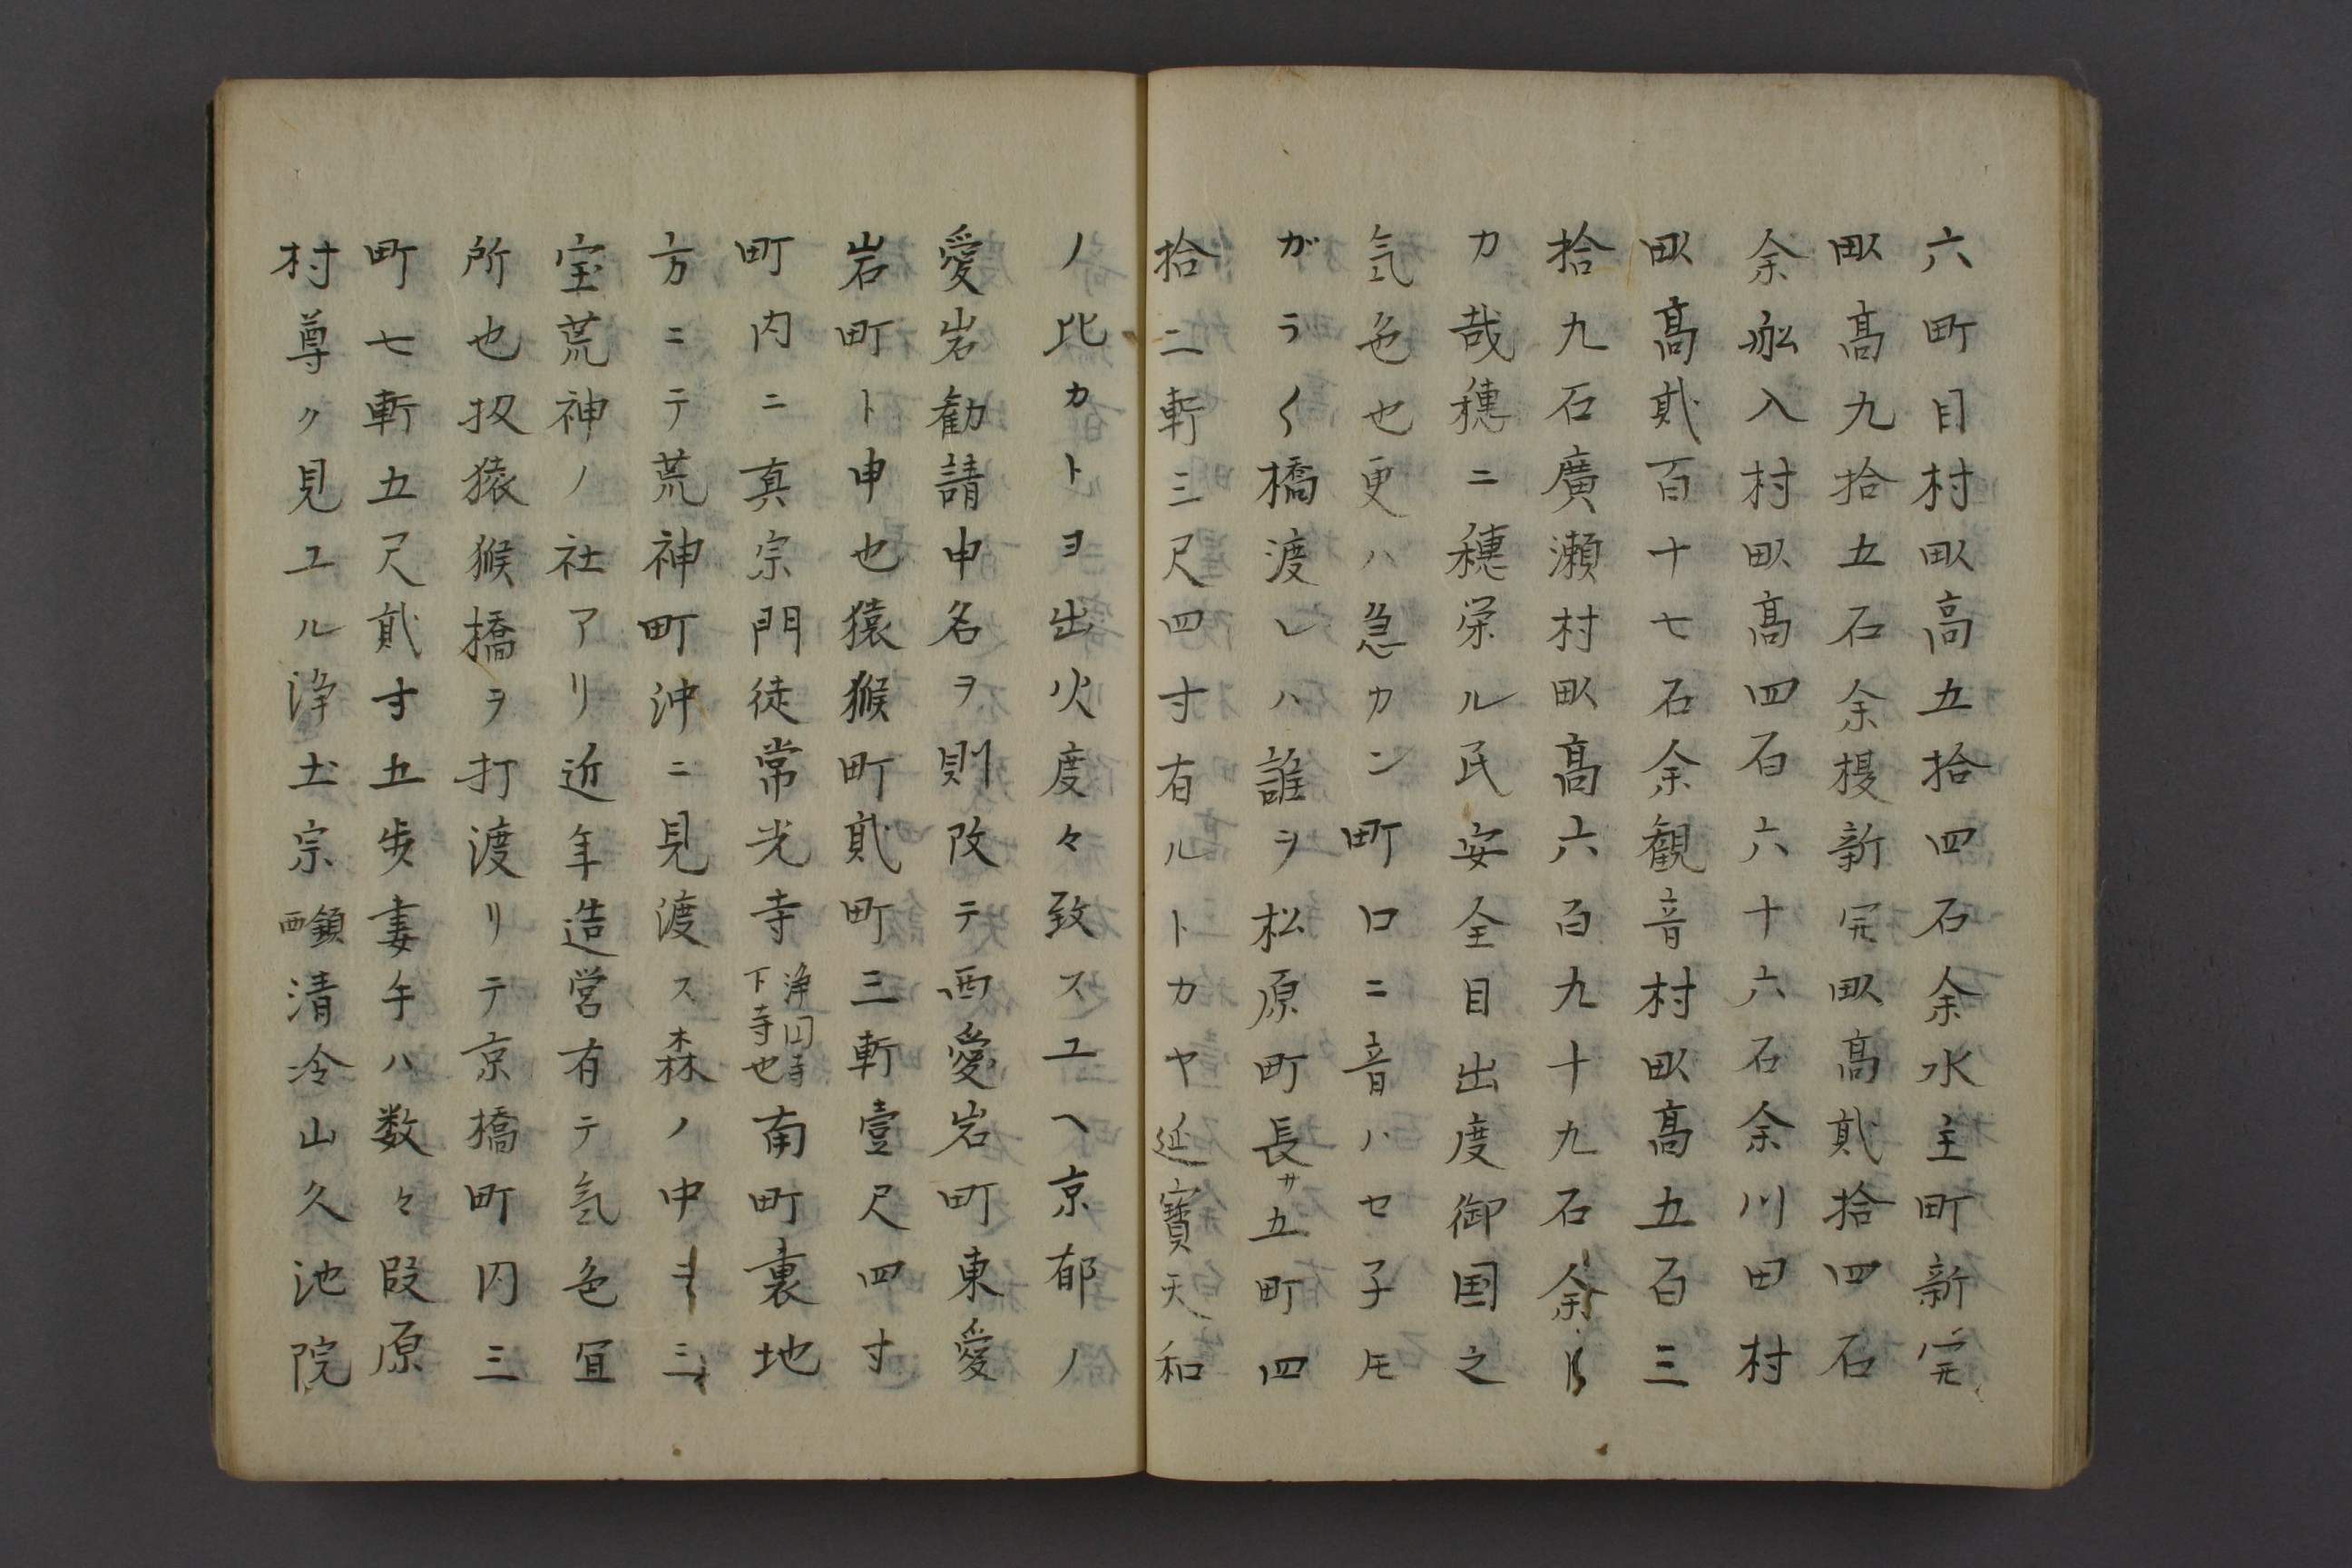 六町目村畝高五拾四石余水主町新完
畝高九拾五石余榎新完畝高貳拾四石
余舩入村畝高四百六十六石余川田村
畝高貳百十七石余観音村畝高五百三
拾九石廣瀬村畝高六百九十九石余
カ哉穂ニ穂栄ル民安全目出度御国之
気色也更ハ急カン町口ニ音ハセ子ㇳモ
がらく橋渡レハ誰ヲ松原町長サ五町四
拾二軒三尺四寸有ルトカヤ延寶天和
ノ比カトヨ出火度々致スユヘ京郁ノ
愛岩勧請申名ヲ則改テ西愛岩町東愛
岩町ト申也猿猴町貳町三軒壹尺四寸
町内ニ真宗門徒常光寺浄囙寺下寺也南町裏地
方ニテ荒神町沖ニ見渡ス森ノ中ヨ三
宝荒神ノ社アリ近年造営有テ気色冝
所也扨猿猴橋ヲ打渡リテ京橋町円三
町七軒五尺貳寸五歩妻午ハ数々段原
村尊ク見ユル浄土宗鎮西清冷山久池院